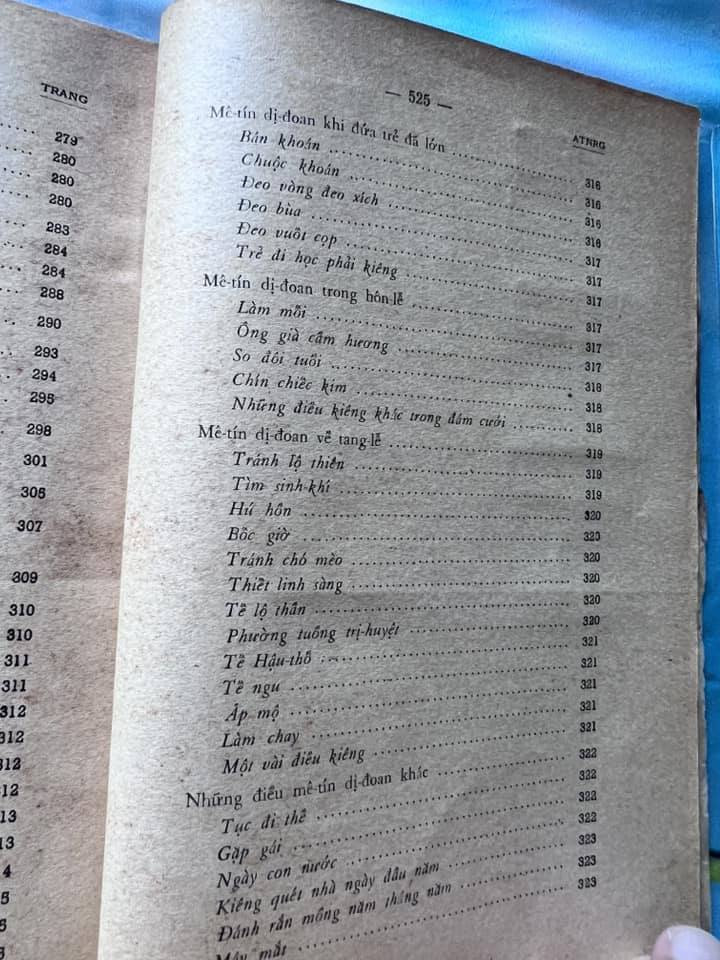 TRANG
279
280
280
280
283
284
284
288
290
293
294
295
298
301
305
307
309
310
310
311
311
312
312
312
12
13
13
4
5
5
— 525 —
ATNRG
Mê-tín dị-đoan khi đứa trẻ đã lớn 316
Bán khoán 316
Chuộc khoán 316
Đeo vòng đeo xích 316
Đeo bùa 317
Đeo vuốt cọp 317
Trẻ đi học phải kiêng 317
Mê-tín dị-đoan trong hôn-lễ 317
Làm mối 317
Ông già cầm hương 318
So đôi tuổi 318
Chín chiếc kim 318
Những điều kiêng khác trong đám cưới 318
Mê-tín dị-đoan về tang-lễ 319
Tránh lộ thiên 319
Tìm sinh-khí 319
Hú hồn 320
Bốc giờ 320
Tránh chó mèo 320
Thiết linh sàng 320
Tế lộ thần 320
Phường tuồng trị-huyệt 320
Tế Hậu-thổ 321
Tế ngu 321
Áp mộ 321
Làm chay 321
Một vài điều kiêng 321
Những điều mê-tín dị-đoan khác 322
Tục đi thề 322
Gặp gái 322
Ngày con nước 322
Kiêng quét nhà ngày đầu năm 323
Đánh rắn mồng năm tháng năm 323
Máy mắt 323